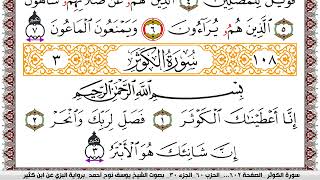 فَوَيْلٌ لِّلْمُصَلِّينَ ٤ ٱلَّذِينَ هُمُۥ عَن صَلَاتِهِمُۥ سَاهُونَ
٥ ٱلَّذِينَ هُمُۥ يُرَآءُونَ ٦ وَيَمْنَعُونَ ٱلْمَاعُونَ ٧
١٠٨ سُورَةُ الْكَوْثَرِ ٣
بِسْمِ اللَّهِ الرَّحْمَٰنِ الرَّحِيمِ
إِنَّآ أَعْطَيْنَٰكَ ٱلْكَوْثَرَ ١ فَصَلِّ لِرَبِّكَ وَٱنْحَرْ ٢
إِنَّ شَانِئَكَ هُوَ ٱلْأَبْتَرُ ٣
سورة الكوثر الصفحة ٦٠٢... الحزب ٦٠ الجزء ٣٠ بصوت الشيخ يوسف نوح احمد برواية البزي عن ابن كثير